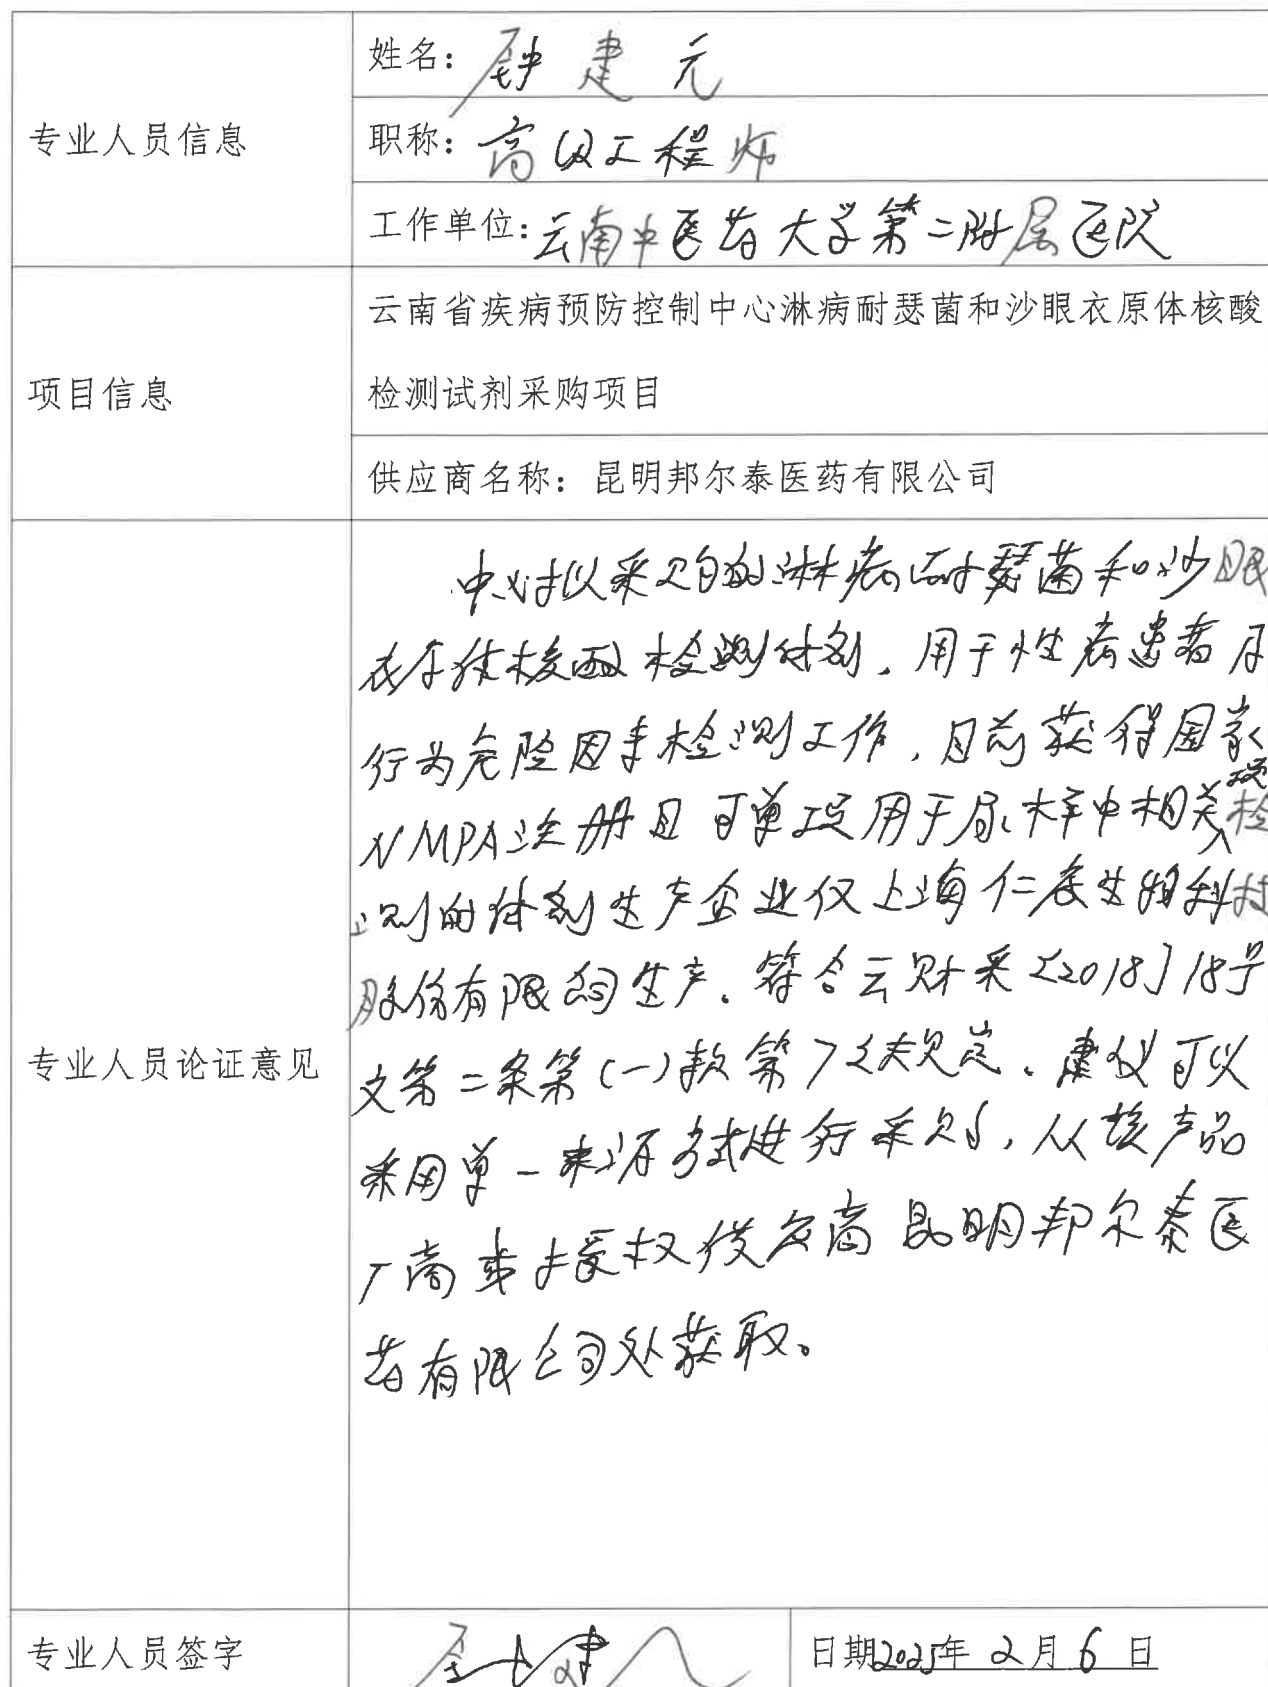 专业人员信息
姓名：钟建元
职称：高级工程师
工作单位：云南中医药大学第二附属医院
项目信息
云南省疾病预防控制中心淋病耐瑟菌和沙眼衣原体核酸
检测试剂采购项目
供应商名称：昆明邦尔泰医药有限公司
专业人员论证意见
中心对拟采购的淋病耐瑟菌和沙眼
衣原体核酸检测试剂，用于性病患者及
行为危险因素检测工作，目前获得国家
NMPA注册且可单项用于尿样中相关项检
测的试剂生产企业仅上海仁度生物科技
股份有限公司生产。符合云财采〔2018〕18号
文第二条第(一)款第7项规定。建议可以
采用单一来源方式进行采购，从该产品
厂商 授权供应商昆明邦尔泰医
药有限公司处获取。
专业人员签字
钟建元
日期2025年2月6日